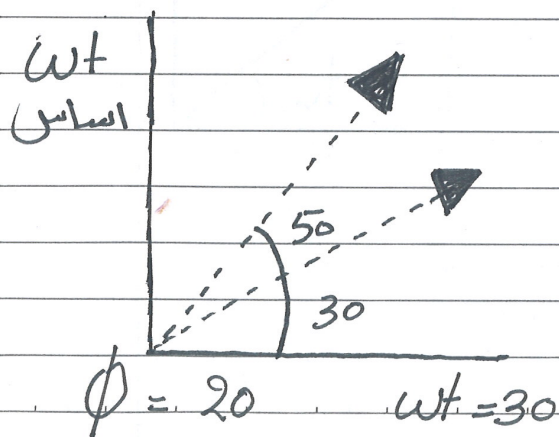 wt
اساس
50
30
φ = 20 wt = 30